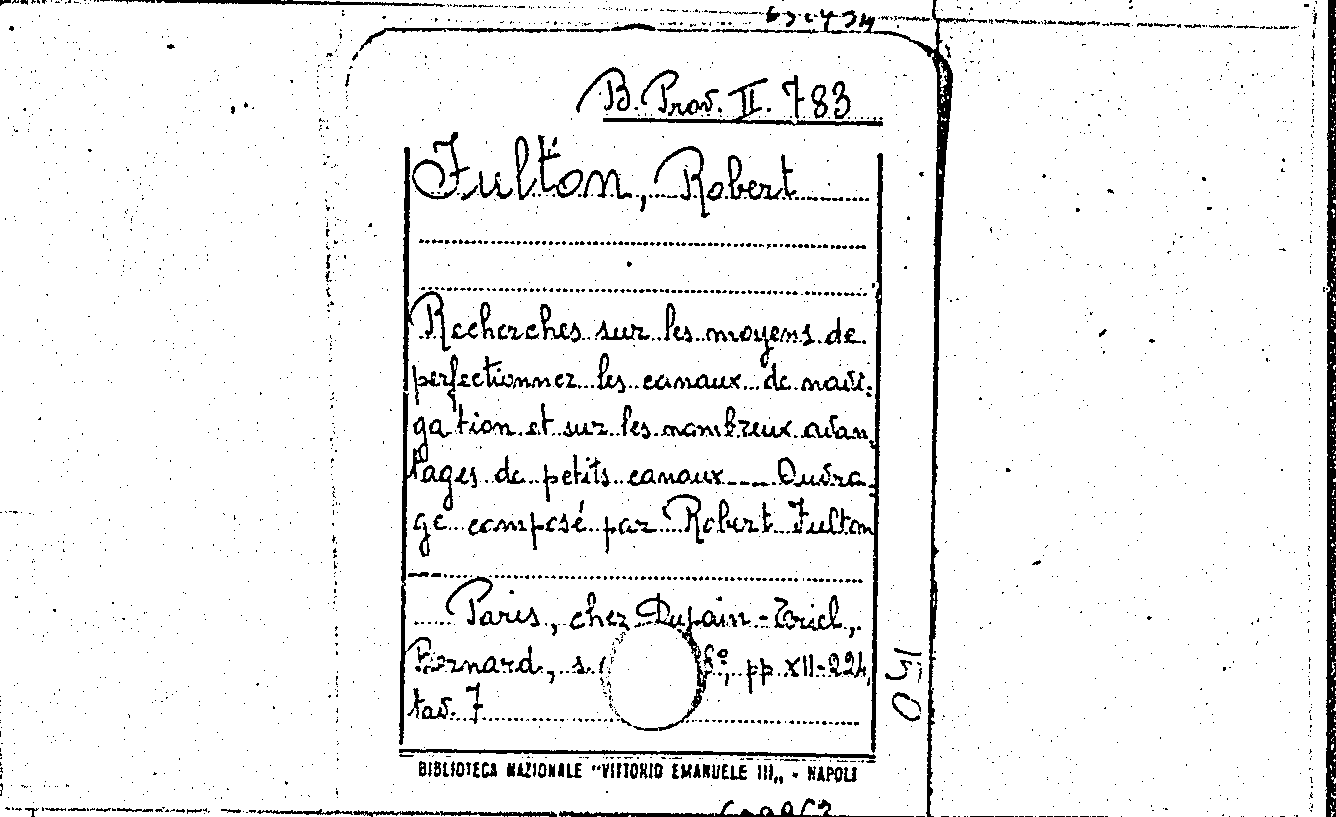 B. Prov. II. 783
Fulton, Robert
Recherches sur les moyens de
perfectionner les canaux de navi:
gation et sur les nombreux avan:
tages de petits canaux.... Ouvra:
ge composé par Robert Fulton
Paris, chez Dupain-Toriel,
Bernard, s. 8°, pp. XII-224,
tav. 7
BIBLIOTECA NAZIONALE "VITTORIO EMANUELE III„ - NAPOLI